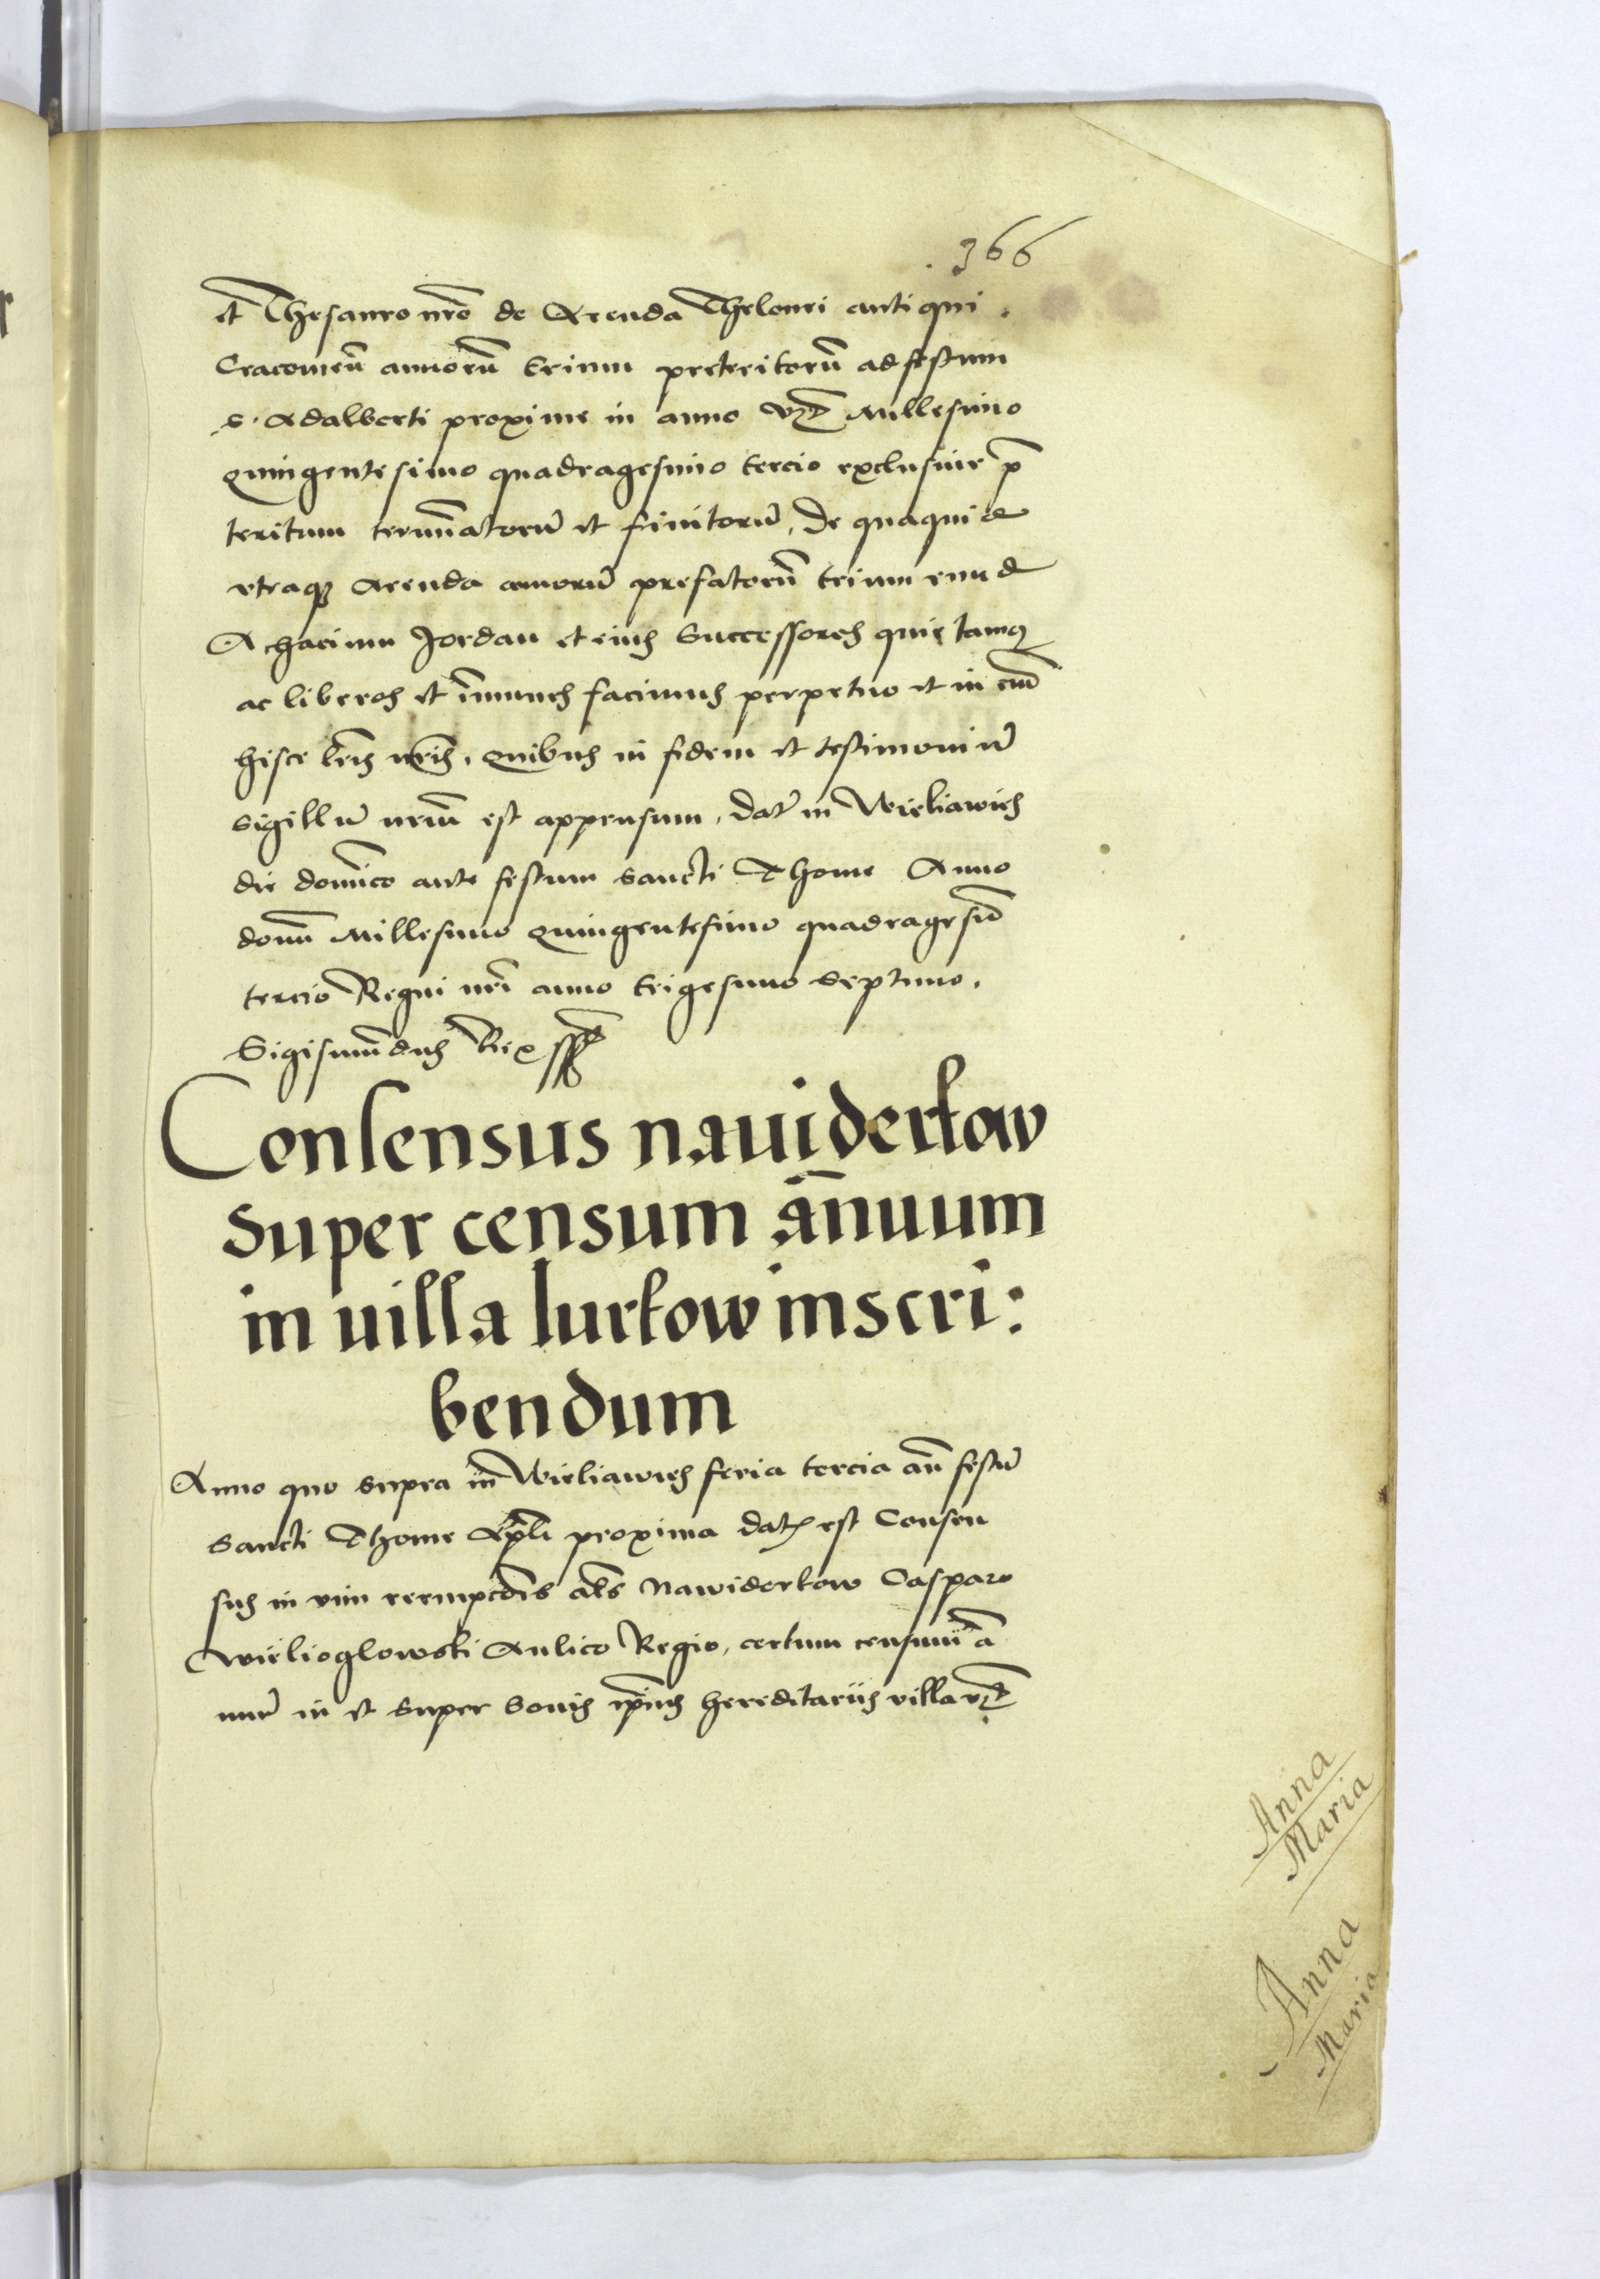 366
et Thesauro nr̄o de Arenda Thelonei antiqui
Cracouien̄ annorū trium preteritorū ad festum
S. Adalberti proxime in anno vz Millesimo
quingentesimo quadragesimo tercio exclusiue p̄
teritum terminatorū et finitorū, de quaquidē
vtraqꝫ Arenda annorū prefatorū trium eundē
Achacium Jordan et eius Successores quietamꝰ
ac liberos et īmunes facimus perpetuo et in euū
hisce lr̄is nr̄is, quibus in fidem et testimoniū
Sigillū nrū̄m est appensum, Datū in Wieliawies
die dominico ante festum Sancti Thome Anno
domī Millesimo quingentesimo quadragesiō
tercio Regni nr̄i anno trigesimo septimo.
Sigismūdus Rex sspt
Consensus nauiderkow
super censum ān̄uum
in uilla lurkow inscri:
bendum
Anno quo supra in Wieliawies feria tercia an̄ festū
Sancti Thome Apl̄i proxima datꝰ est Consen
sus in vim reempcōis al̄s Nawiderkow Casparo
Wielioglowski Aulico Regio, certum censum ā
nuū in et super bonis ip̄ius hereditariis villa vz
Anna
Maria
Anna
Maria